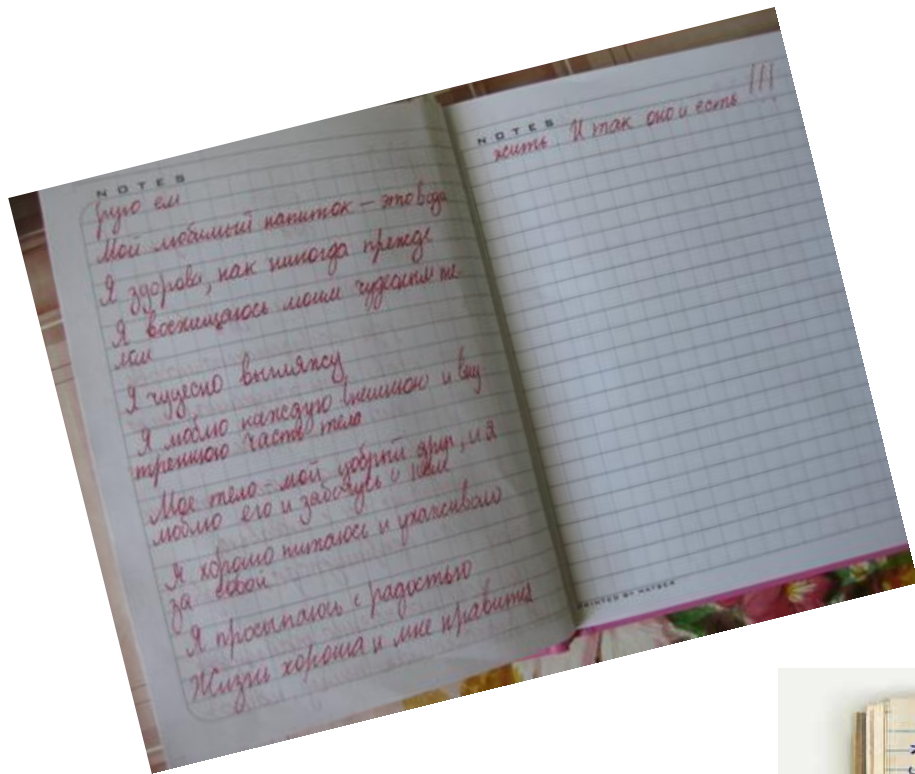 NOTES
рую ем
Мой любимый напиток – это вода
Я здорова, как никогда прежде
Я восхищаюсь моим чудесным те-
лом
Я чудесно выгляжу
Я люблю каждую внешнюю и вну
треннюю часть тела
Мое тело - мой добрый друг, и я
люблю его и забочусь о нем
Я хорошо питаюсь и ухаживаю
за собой
Я просыпаюсь с радостью
Жизнь хороша и мне нравится
NOTES
жить И так оно и есть !!!
PRINTED BY